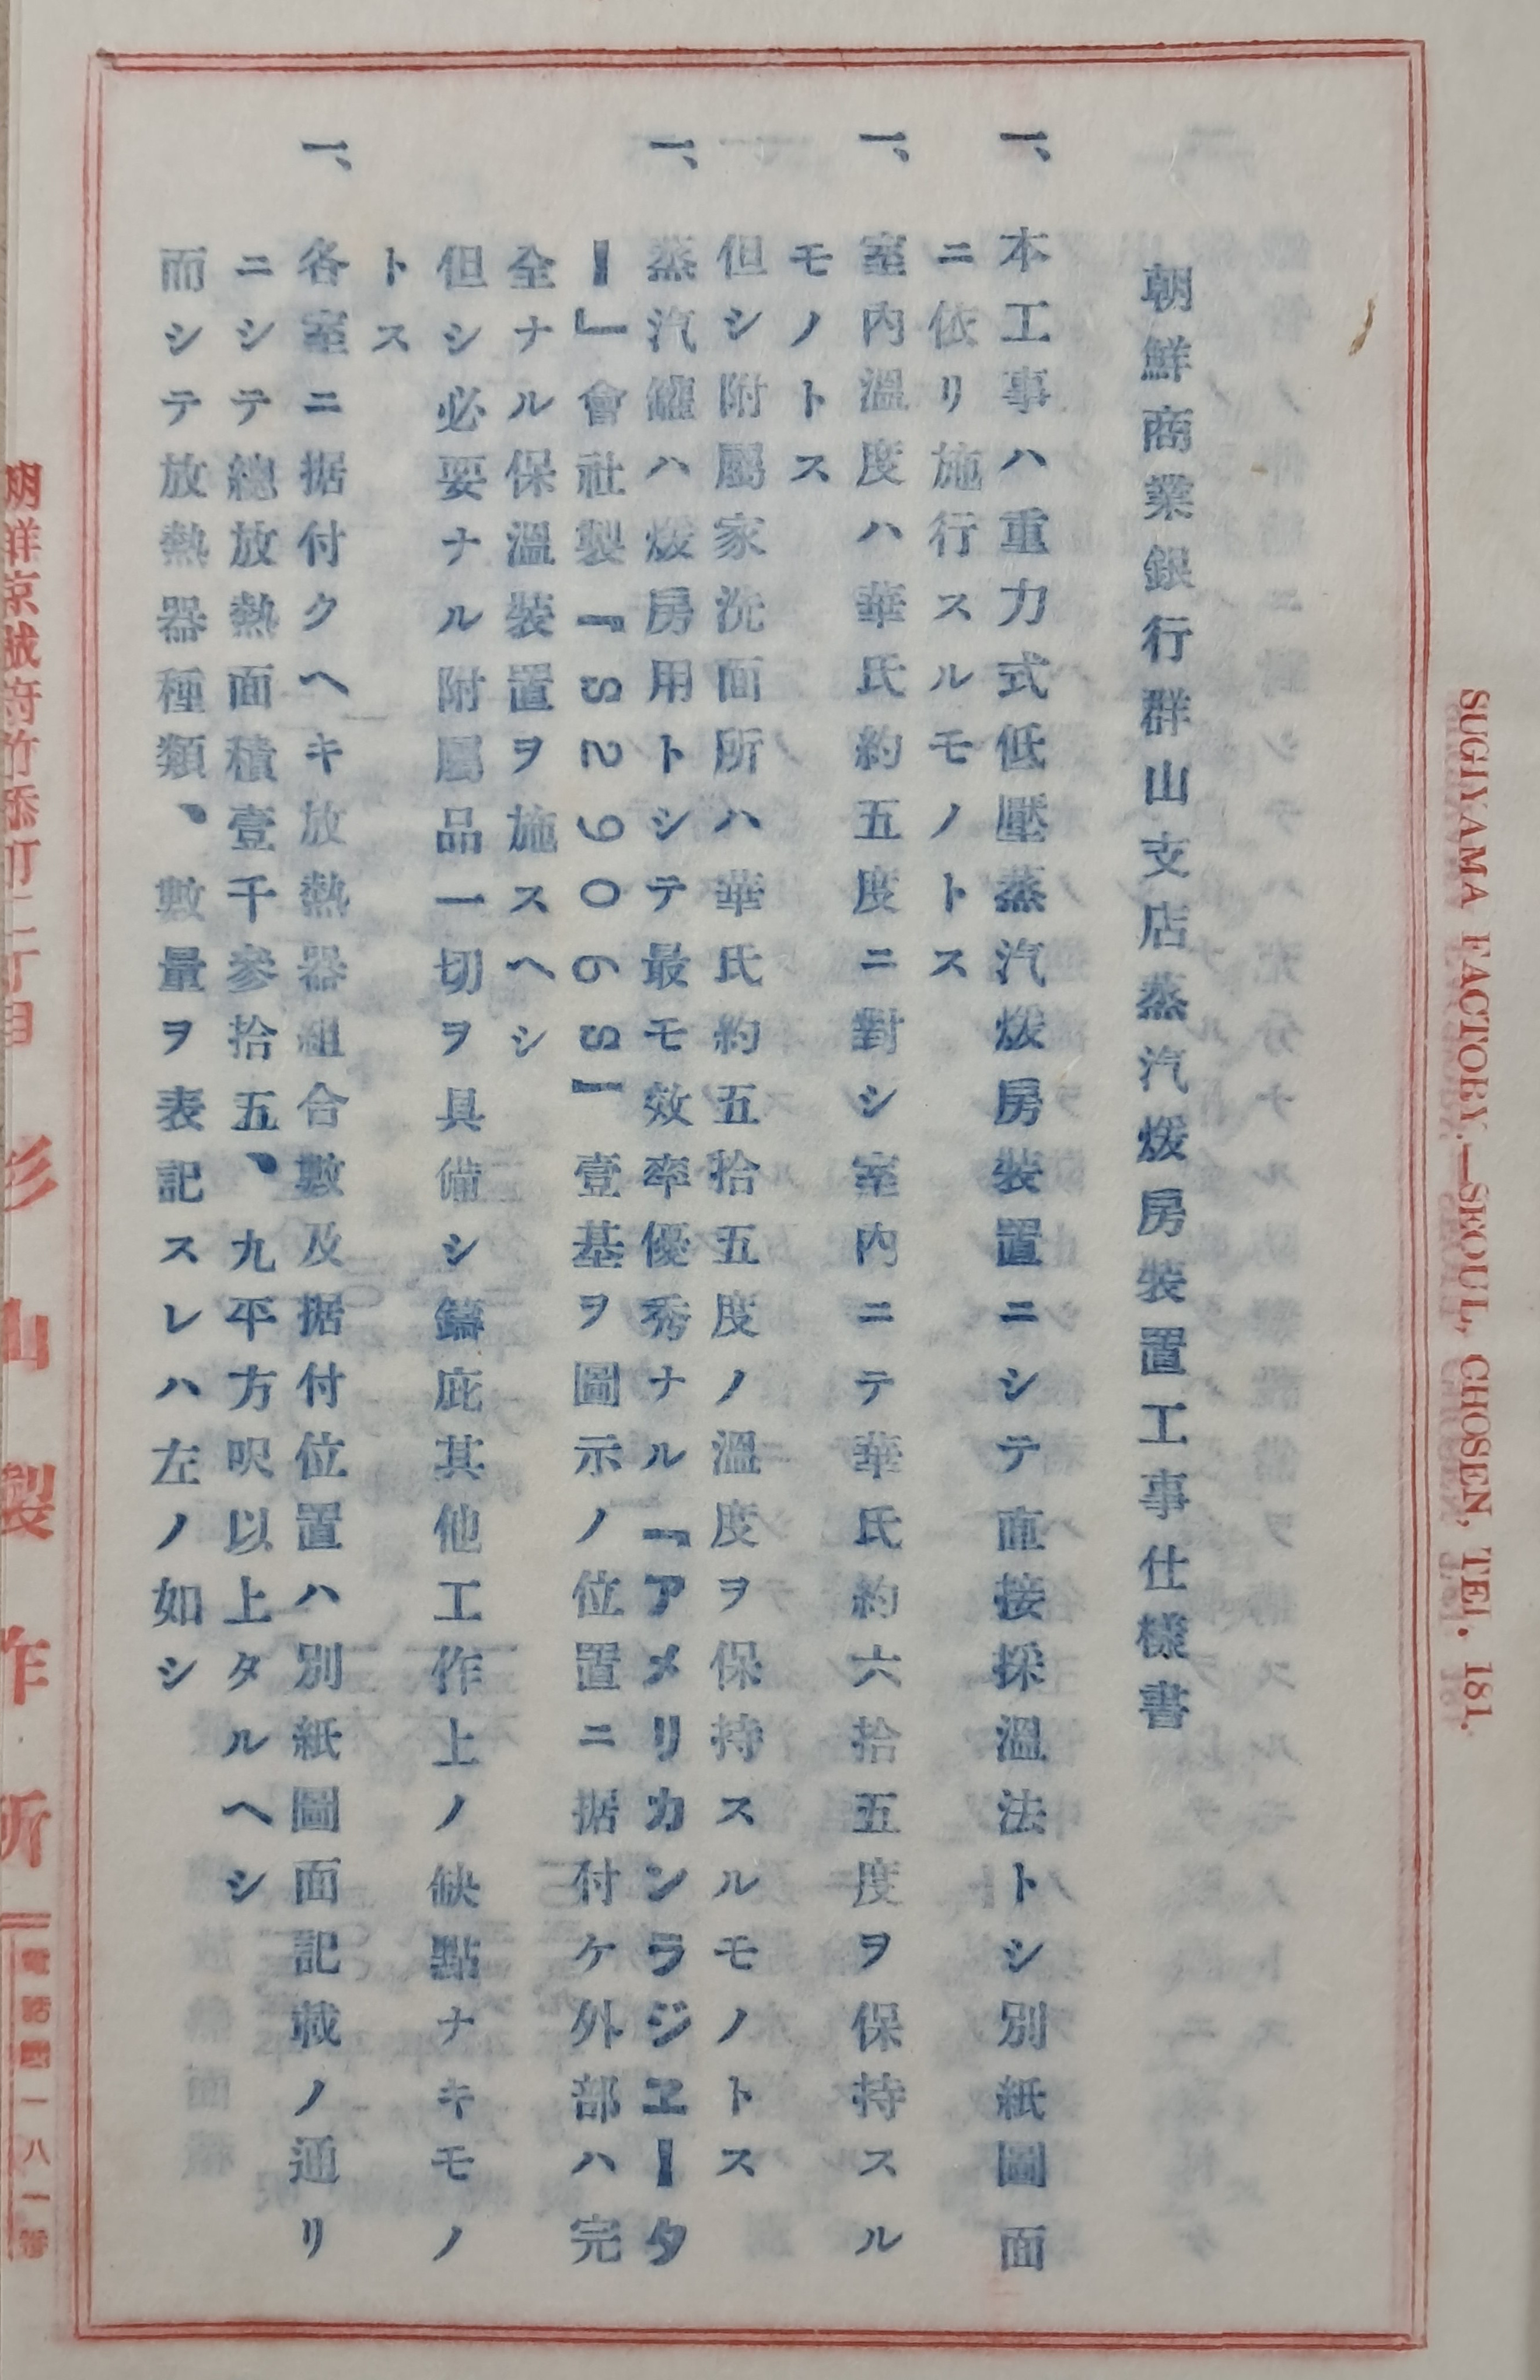 SUGIYAMA FACTORY.—SEOUL, CHOSEN, TEL. 181.
朝鮮商業銀行群山支店蒸汽煖房裝置工事仕樣書
一、本工事ハ重力式低壓蒸汽煖房裝置ニシテ直接採溫法トシ別紙圖面
ニ依リ施行スルモノトス
一、室內溫度ハ華氏約五度ニ對シ室內ニテ華氏約六拾五度ヲ保持スル
モノトス
但シ附屬家洗面所ハ華氏約五拾五度ノ溫度ヲ保持スルモノトス
一、蒸汽罐ハ煖房用トシテ最モ效率優秀ナル「アメリカンラジエータ
ー」會社製「S2906S」壹基ヲ圖示ノ位置ニ据付ケ外部ハ完
全ナル保溫裝置ヲ施スヘシ
但シ必要ナル附屬品一切ヲ具備シ鑄庇其他工作上ノ缺點ナキモノ
トス
一、各室ニ据付クヘキ放熱器組合數及据付位置ハ別紙圖面記載ノ通リ
ニシテ總放熱面積壹千參拾五、九平方呎以上タルヘシ
而シテ放熱器種類、數量ヲ表記スレハ左ノ如シ
朝鮮京城府竹添町二丁目 杉山製作所 電話 一八一番